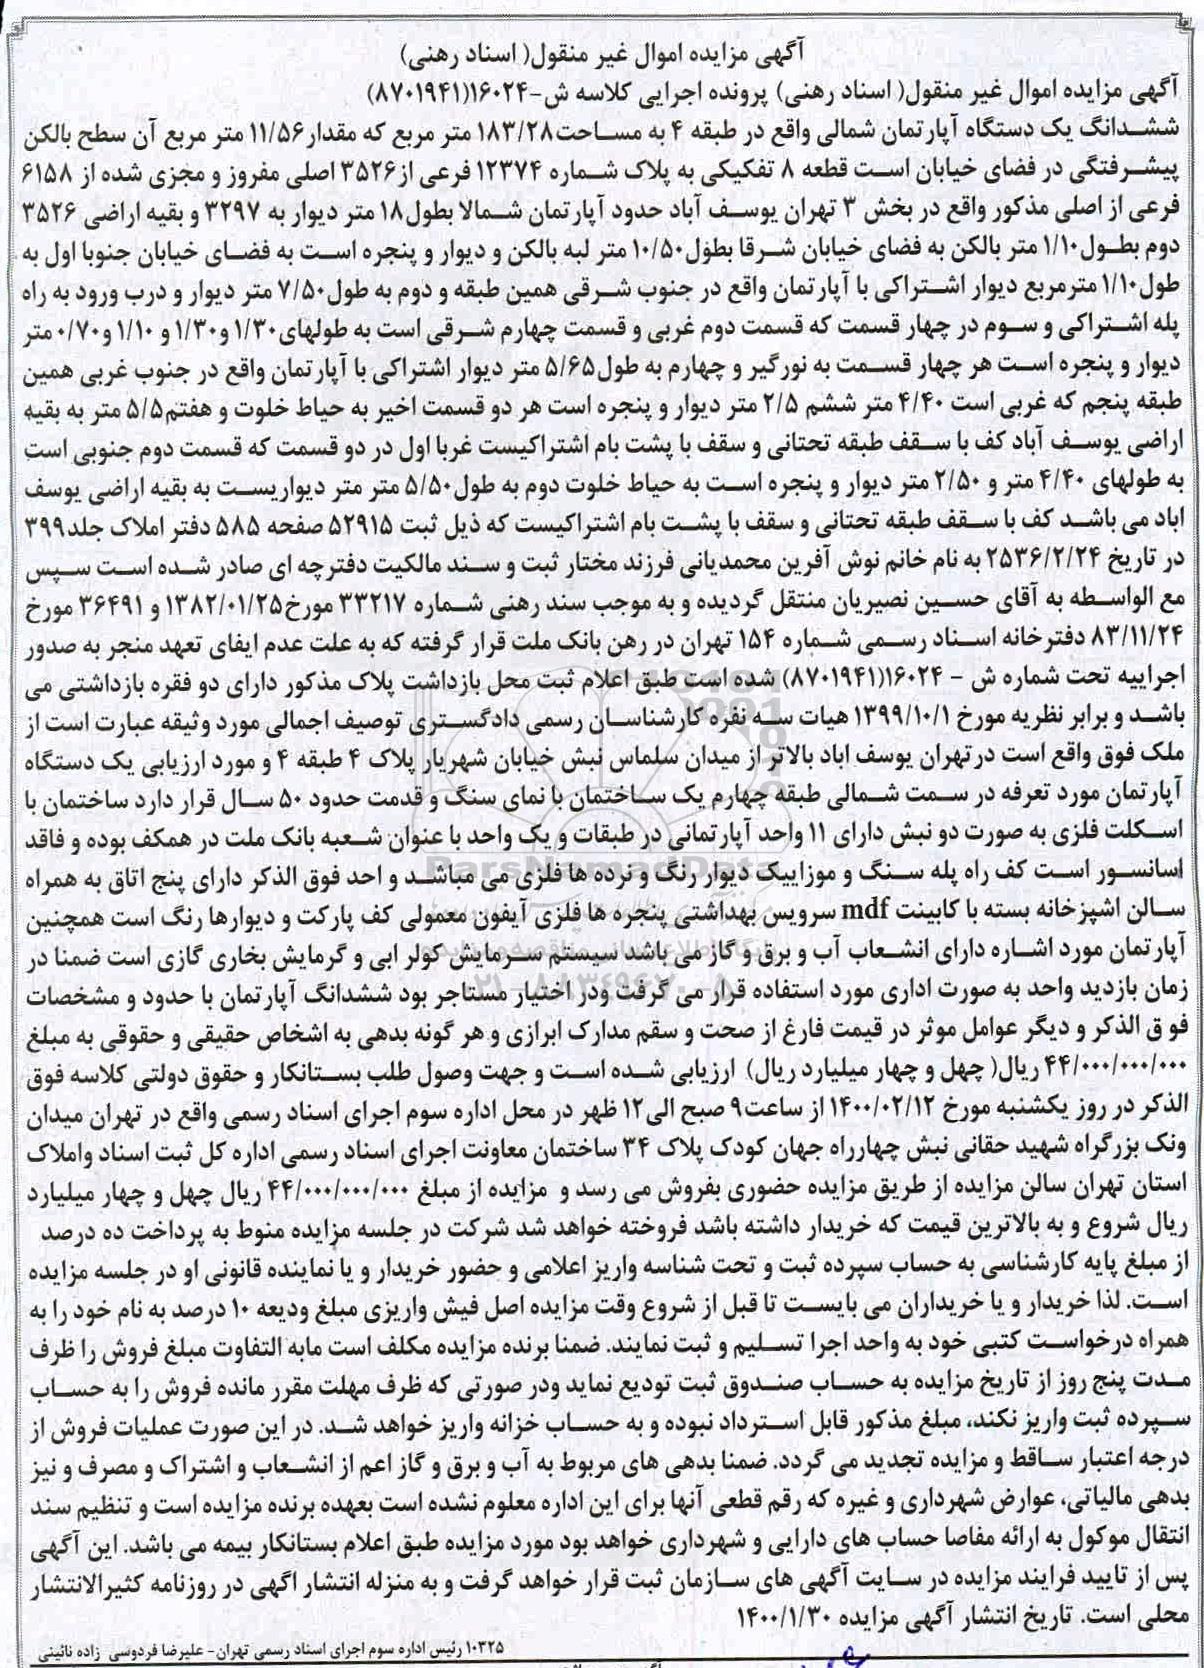 آگهی مزایده اموال غیر منقول( اسناد رهنی)
آگهی مزایده اموال غیر منقول( اسناد رهنی) پرونده اجرایی کلاسه ش-۱۶۰۲۴(۸۷۰۱۹۴۱)
ششدانگ یک دستگاه آپارتمان شمالی واقع در طبقه ۴ به مساحت۱۸۳/۲۸ متر مربع که مقدار۱۱/۵۶ متر مربع آن سطح بالکن
پیشرفتگی در فضای خیابان است قطعه ۸ تفکیکی به پلاک شماره ۱۲۳۷۴ فرعی از۳۵۲۶ اصلی مفروز و مجزی شده از ۶۱۵۸
فرعی از اصلی مذکور واقع در بخش ۳ تهران یوسف آباد حدود آپارتمان شمالا بطول۱۸ متر دیوار به ۳۲۹۷ و بقیه اراضی ۳۵۲۶
دوم بطول۱/۱۰ متر بالکن به فضای خیابان شرقا بطول۱۰/۵۰ متر لبه بالکن و دیوار و پنجره است به فضای خیابان جنوبا اول به
طول۱/۱۰ مترمربع دیوار اشتراکی با آپارتمان واقع در جنوب شرقی همین طبقه و دوم به طول۷/۵۰ متر دیوار و درب ورود به راه
پله اشتراکی و سوم در چهار قسمت که قسمت دوم غربی و قسمت چهارم شرقی است به طولهای۱/۳۰ و۱/۳۰ و ۱/۱۰ و۰/۷۰ متر
دیوار و پنجره است هر چهار قسمت به نورگیر و چهارم به طول۵/۶۵ متر دیوار اشتراکی با آپارتمان واقع در جنوب غربی همین
طبقه پنجم که غربی است ۴/۴۰ متر ششم ۲/۵ متر دیوار و پنجره است هر دو قسمت اخیر به حیاط خلوت و هفتم۵/۵ متر به بقیه
اراضی یوسف آباد کف با سقف طبقه تحتانی و سقف با پشت بام اشتراکیست غربا اول در دو قسمت که قسمت دوم جنوبی است
به طولهای ۴/۴۰ متر و ۲/۵۰ متر دیوار و پنجره است به حیاط خلوت دوم به طول۵/۵۰ متر متر دیواریست به بقیه اراضی یوسف
اباد می باشد کف با سقف طبقه تحتانی و سقف با پشت بام اشتراکیست که ذیل ثبت ۵۲۹۱۵ صفحه ۵۸۵ دفتر املاک جلد۳۹۹
در تاریخ ۲۵۳۶/۲/۲۴ به نام خانم نوش آفرین محمدیانی فرزند مختار ثبت و سند مالکیت دفترچه ای صادر شده است سپس
مع الواسطه به آقای حسین نصیریان منتقل گردیده و به موجب سند رهنی شماره ۳۳۲۱۷ مورخ۱۳۸۲/۰۱/۲۵ و ۳۶۴۹۱ مورخ
۸۳/۱۱/۲۴ دفترخانه اسناد رسمی شماره ۱۵۴ تهران در رهن بانک ملت قرار گرفته که به علت عدم ایفای تعهد منجر به صدور
اجراییه تحت شماره ش - ۱۶۰۲۴(۸۷۰۱۹۴۱) شده است طبق اعلام ثبت محل بازداشت پلاک مذکور دارای دو فقره بازداشتی می
باشد و برابر نظریه مورخ ۱۳۹۹/۱۰/۱ هیات سه نفره کارشناسان رسمی دادگستری توصیف اجمالی مورد وثیقه عبارت است از
ملک فوق واقع است درتهران یوسف اباد بالاتر از میدان سلماس نبش خیابان شهریار پلاک ۴ طبقه ۴ و مورد ارزیابی یک دستگاه
آپارتمان مورد تعرفه در سمت شمالی طبقه چهارم یک ساختمان با نمای سنگ و قدمت حدود ۵۰ سال قرار دارد ساختمان با
اسکلت فلزی به صورت دو نبش دارای ۱۱ واحد آپارتمانی در طبقات و یک واحد با عنوان شعبه بانک ملت در همکف بوده و فاقد
اسانسور است کف راه پله سنگ و موزاییک دیوار رنگ و نرده ها فلزی می مباشد و احد فوق الذکر دارای پنج اتاق به همراه
سالن اشپزخانه بسته با کابینت mdf سرویس بهداشتی پنجره ها فلزی آیفون معمولی کف پارکت و دیوارها رنگ است همچنین
آپارتمان مورد اشاره دارای انشعاب آب و برق و گاز می باشد سیستم سرمایش کولر ابی و گرمایش بخاری گازی است ضمنا در
زمان بازدید واحد به صورت اداری مورد استفاده قرار می گرفت ودر اختیار مستاجر بود ششدانگ آپارتمان با حدود و مشخصات
فو ق الذکر و دیگر عوامل موثر در قیمت فارغ از صحت و سقم مدارک ابرازی و هر گونه بدهی به اشخاص حقیقی و حقوقی به مبلغ
۴۴/۰۰۰/۰۰۰/۰۰۰ ریال( چهل و چهار میلیارد ریال) ارزیابی شده است و جهت وصول طلب بستانکار و حقوق دولتی کلاسه فوق
الذکر در روز یکشنبه مورخ ۱۴۰۰/۰۲/۱۲ از ساعت۹ صبح الی۱۲ ظهر در محل اداره سوم اجرای اسناد رسمی واقع در تهران میدان
ونک بزرگراه شهید حقانی نبش چهارراه جهان کودک پلاک ۳۴ ساختمان معاونت اجرای اسناد رسمی اداره کل ثبت اسناد واملاک
استان تهران سالن مزایده از طریق مزایده حضوری بفروش می رسد و مزایده از مبلغ ۴۴/۰۰۰/۰۰۰/۰۰۰ ریال چهل و چهار میلیارد
ریال شروع و به بالاترین قیمت که خریدار داشته باشد فروخته خواهد شد شرکت در جلسه مزایده منوط به پرداخت ده درصد
از مبلغ پایه کارشناسی به حساب سپرده ثبت و تحت شناسه واریز اعلامی و حضور خریدار و یا نماینده قانونی او در جلسه مزایده
است. لذا خریدار و یا خریداران می بایست تا قبل از شروع وقت مزایده اصل فیش واریزی مبلغ ودیعه ۱۰ درصد به نام خود را به
همراه درخواست کتبی خود به واحد اجرا تسلیم و ثبت نمایند. ضمنا برنده مزایده مکلف است مابه التفاوت مبلغ فروش را ظرف
مدت پنج روز از تاریخ مزایده به حساب صندوق ثبت تودیع نماید ودر صورتی که ظرف مهلت مقرر مانده فروش را به حساب
سپرده ثبت واریز نکند، مبلغ مذکور قابل استرداد نبوده و به حساب خزانه واریز خواهد شد. در این صورت عملیات فروش از
درجه اعتبار ساقط و مزایده تجدید می گردد. ضمنا بدهی های مربوط به آب و برق و گاز اعم از انشعاب و اشتراک و مصرف و نیز
بدهی مالیاتی، عوارض شهرداری و غیره که رقم قطعی آنها برای این اداره معلوم نشده است بعهده برنده مزایده است و تنظیم سند
انتقال موکول به ارائه مفاصا حساب های دارایی و شهرداری خواهد بود مورد مزایده طبق اعلام بستانکار بیمه می باشد. این آگهی
پس از تایید فرایند مزایده در سایت آگهی های سازمان ثبت قرار خواهد گرفت و به منزله انتشار اگهی در روزنامه کثیرالانتشار
محلی است. تاریخ انتشار آگهی مزایده ۱۴۰۰/۱/۳۰
۱۰۳۲۵ رئیس اداره سوم اجرای اسناد رسمی تهران- علیرضا فردوسی زاده نائینی
ParsNamadData